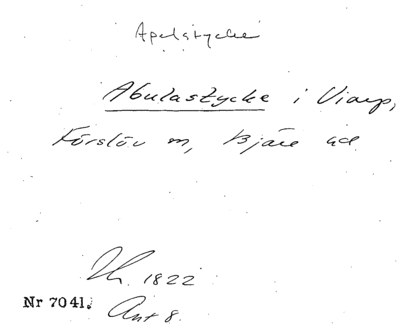 Apelstycke
Abulastycke i Viarp,
Förslöv sn, Bjäre hd.
Th. 1822
Nr 7041. Ant 8.